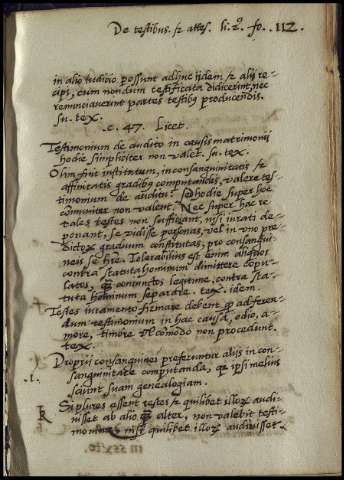 De testibus. & attes. li. 2. fo. 112
in alio iudicio possunt adhuc iidem & alij re-
cipi, cum nondum testificata didicerint, nec
renunciauerint partes testibus producendis.
su. tex.
.c. 47. Licet.
Testimonium de auditu in causis matrimonij
hodie simpliciter non valet. su. tex.
Olim fuit institutum, in consanguinitatis &
affinitatis gradibus computandis, valere tes-
timonium de auditu: sed hodie super hoc
comuniter non valent. Nec super hac re
tales testes non sufficiant, nisi iurati de-
ponant, se vidisse personas, vel in vno pre-
dictor graduum constitutas, pro consangui-
neis se hre. Tolerabilius est enim aliquos
contra statuta hominum dimittere copu-
latos, quam coniunctos legitime, contra sta-
tuta hominum separare. tex. idem.
Testes iuramento firmare debent quod ad feren-
dum testimonium in hac causa, odio, a-
more, timore vl comodo non procedunt.
tex.
.i. Proprij consanguinei preferuntur alijs in con-
sanguinitate computanda, qr ipsi melius
sciunt suam genealogiam.
k Si plures essent testes & quilibet illor audi-
uisset ab alio quam alter, non valebit testi-
monium nisi quilibet illor audiuisset